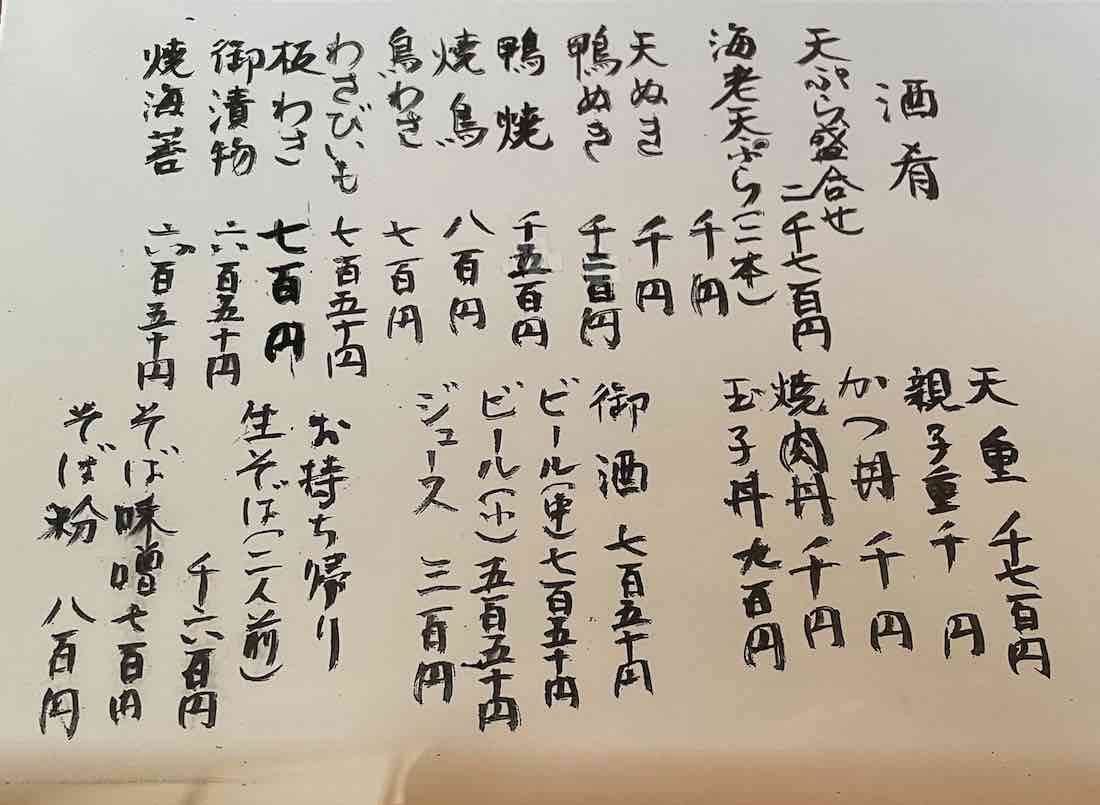 酒肴
天ぷら盛合せ
二千七百円
海老天ぷら(二本)
千円
天ぬき 千円
鴨ぬき 千二百円
鴨焼 千五百円
焼鳥 八百円
鳥わさ 七百円
わさびいも 七百五十円
板わさ 七百円
御漬物 六百五十円
焼海苔 六百五十円
天重 千七百円
親子重 千円
かつ丼 千円
焼肉丼 千円
玉子丼 九百円
御酒 七百五十円
ビール(中)七百五十円
ビール(小)五百五十円
ジュース 三百円
お持ち帰り
生そば(二人前)
千六百円
そば味噌七百円
そば粉 八百円